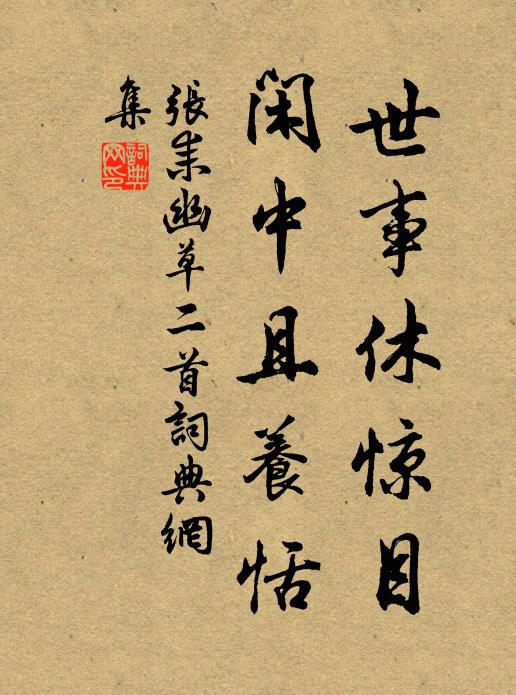 世事休惊目
閑中且養恬
張耒幽草二首詞典網
集
詞典網印